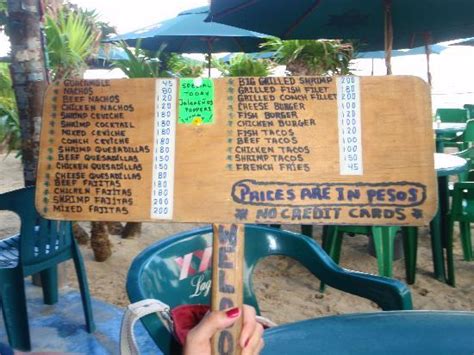 GUACAMOLE 45
NACHOS 80
BEEF NACHOS 120
CHICKEN NACHOS 120
SHRIMP CEVICHE 180
SHRIMP COCKTAIL 180
MIXED CEVICHE 180
CONCH CEVICHE 180
SHRIMP QUESADILLAS 180
BEEF QUESADILLAS 150
CHICKEN QUESADILLAS 150
CHEESE QUESADILLAS 100
BEEF FAJITAS 180
CHICKEN FAJITAS 180
SHRIMP FAJITAS 200
MIXED FAJITAS 200
SPECIAL
TODAY
Jalapeños
POPPERS
BIG GRILLED SHRIMP 200
GRILLED FISH FILET
GRILLED CONCH FILLET
CHEESE BURGER
FISH BURGER
CHICKEN BURGER
FISH TACOS
BEEF TACOS
CHICKEN TACOS
SHRIMP TACOS 150
FRENCH FRIES 45
PRICES ARE IN PESOS
* NO CREDIT CARDS *
WELCO
XX
Lag